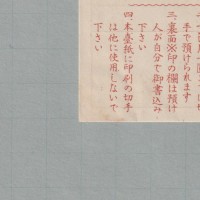 手で預けられます
三、裏面※印の欄は預け
人が自分で御書込み
下さい
四、本台紙に印刷の切手
は他に使用しないで
下さい